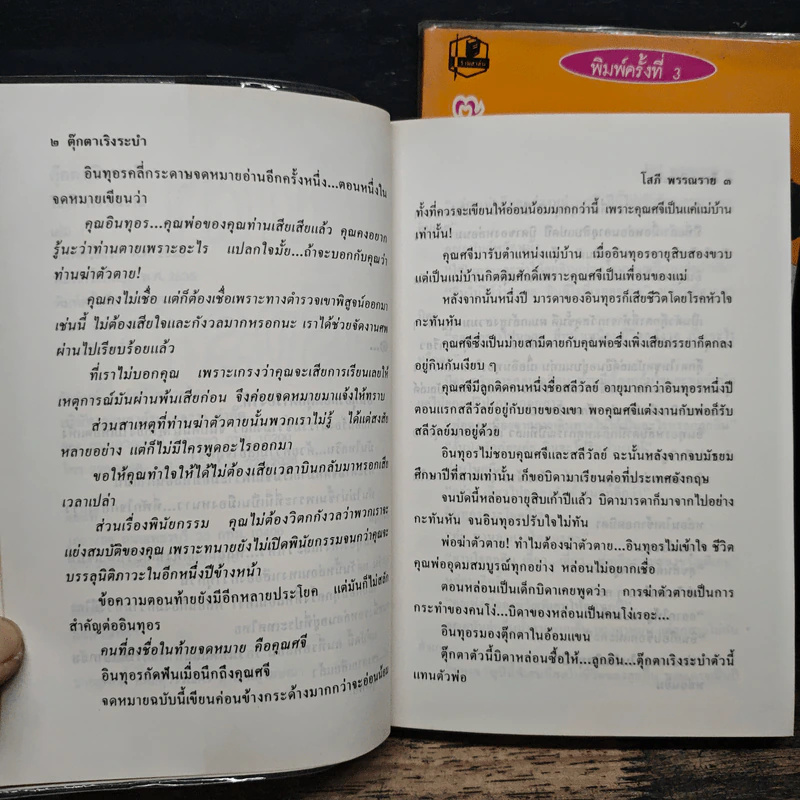 พิมพ์ครั้งที่ 3
๒ ตุ๊กตาเริงระบำ
อินทุอรคลี่กระดาษจดหมายอ่านอีกครั้งหนึ่ง...ตอนหนึ่งใน
จดหมายเขียนว่า
คุณอินทุอร...คุณพ่อของคุณท่านเสียเสียแล้ว คุณคงอยาก
รู้นะว่าท่านตายเพราะอะไร แปลกใจมั้ย...ถ้าจะบอกกับคุณว่า
ท่านฆ่าตัวตาย!
คุณคงไม่เชื่อ แต่ก็ต้องเชื่อเพราะทางตำรวจเขาพิสูจน์ออกมา
เช่นนี้ ไม่ต้องเสียใจและกังวลมากหรอกนะ เราได้ช่วยจัดงานศพ
ผ่านไปเรียบร้อยแล้ว
ที่เราไม่บอกคุณ เพราะเกรงว่าคุณจะเสียการเรียนเลยให้
เหตุการณ์มันผ่านพ้นเสียก่อน จึงค่อยจดหมายมาแจ้งให้ทราบ
ส่วนสาเหตุที่ท่านฆ่าตัวตายนั้นพวกเราไม่รู้ ได้แต่สงสัย
หลายอย่าง แต่ก็ไม่มีใครพูดอะไรออกมา
ขอให้คุณทำใจให้ได้ไม่ต้องเสียเวลาบินกลับมาหรอกเสีย
เวลาเปล่า
ส่วนเรื่องพินัยกรรม คุณไม่ต้องวิตกกังวลว่าพวกเราจะ
แย่งสมบัติของคุณ เพราะทนายยังไม่เปิดพินัยกรรมจนกว่าคุณจะ
บรรลุนิติภาวะในอีกหนึ่งปีข้างหน้า
ข้อความตอนท้ายยังมีอีกหลายประโยค แต่มันก็ไม่สลัก
สำคัญต่ออินทุอร
คนที่ลงชื่อในท้ายจดหมาย คือคุณศจี
อินทุอรกัดฟันเมื่อนึกถึงคุณศจี
จดหมายฉบับนี้เขียนค่อนข้างกระด้างมากกว่าจะอ่อนน้อม
โสภี พรรณราย ๓
ทั้งที่ควรจะเขียนให้อ่อนน้อมมากกว่านี้ เพราะคุณศจีเป็นแค่แม่บ้าน
เท่านั้น!
คุณศจีมารับตำแหน่งแม่บ้าน เมื่ออินทุอรอายุสิบสองขวบ
แต่เป็นแม่บ้านกิตติมศักดิ์เพราะคุณศจีเป็นเพื่อนของแม่
หลังจากนั้นหนึ่งปี มารดาของอินทุอรก็เสียชีวิตโดยโรคหัวใจ
กะทันหัน
คุณศจีซึ่งเป็นม่ายสามีตายกับคุณพ่อซึ่งเพิ่งเสียภรรยาก็ตกลง
อยู่กินกันเงียบ ๆ
คุณศจีมีลูกติดคนหนึ่งชื่อสลีวัลย์ อายุมากกว่าอินทุอรหนึ่งปี
ตอนแรกสลีวัลย์อยู่กับยายของเขา พอคุณศจีแต่งงานกับพ่อก็รับ
สลีวัลย์มาอยู่ด้วย
อินทุอรไม่ชอบคุณศจีและสลีวัลย์ ฉะนั้นหลังจากจบมัธยม
ศึกษาปีที่สามเท่านั้น ก็ขอบิดามาเรียนต่อที่ประเทศอังกฤษ
จนบัดนี้หล่อนอายุสิบเก้าปีแล้ว บิดามารดาก็มาจากไปอย่าง
กะทันหัน จนอินทุอรปรับใจไม่ทัน
พ่อฆ่าตัวตาย! ทำไมต้องฆ่าตัวตาย...อินทุอรไม่เข้าใจ ชีวิต
คุณพ่ออุดมสมบูรณ์ทุกอย่าง หล่อนไม่อยากเชื่อ
ตอนหล่อนเป็นเด็กบิดาเคยพูดว่า การฆ่าตัวตายเป็นการ
กระทำของคนโง่...บิดาของหล่อนเป็นคนโง่เรอะ...
อินทุอรมองตุ๊กตาในอ้อมแขน
ตุ๊กตาตัวนี้บิดาหล่อนซื้อให้...ลูกอิน...ตุ๊กตาเริงระบำตัวนี้
แทนตัวพ่อ